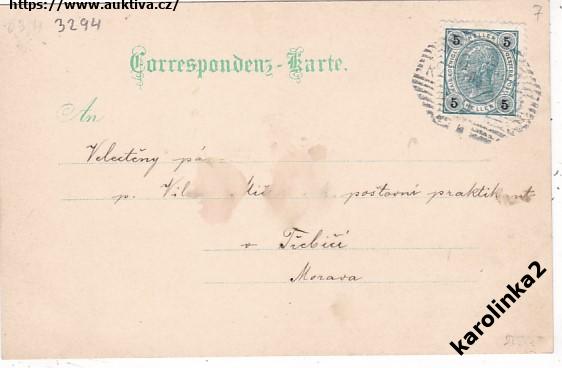 https://www.auktiva.cz/
3294
7
Correspondenz-Karte.
5 5
HELLER
5 5
An
Velectěný
p. poštovní praktikant
v Třebíči
Morava
karolinka2